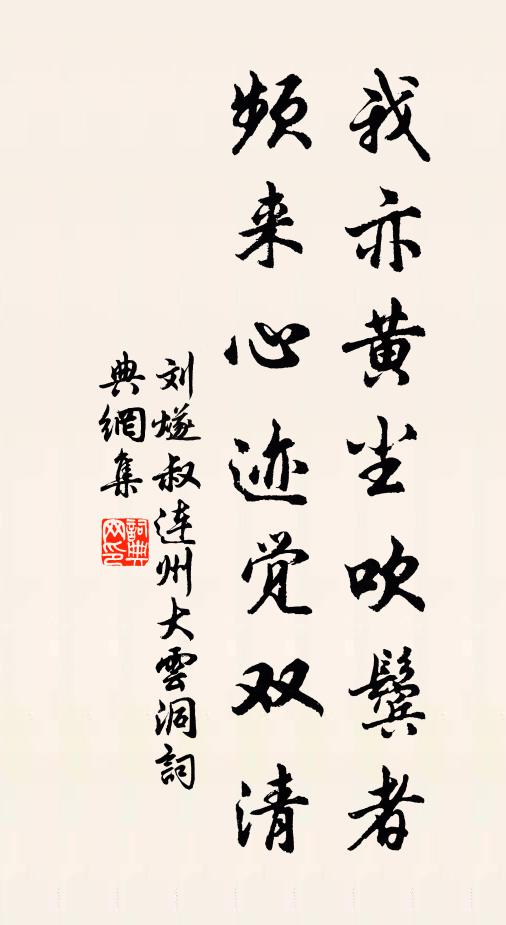 我亦黄尘吹鬓者
频来心迹觉双清
刘燧叔连州大雲洞詞
典網集
詞典网印